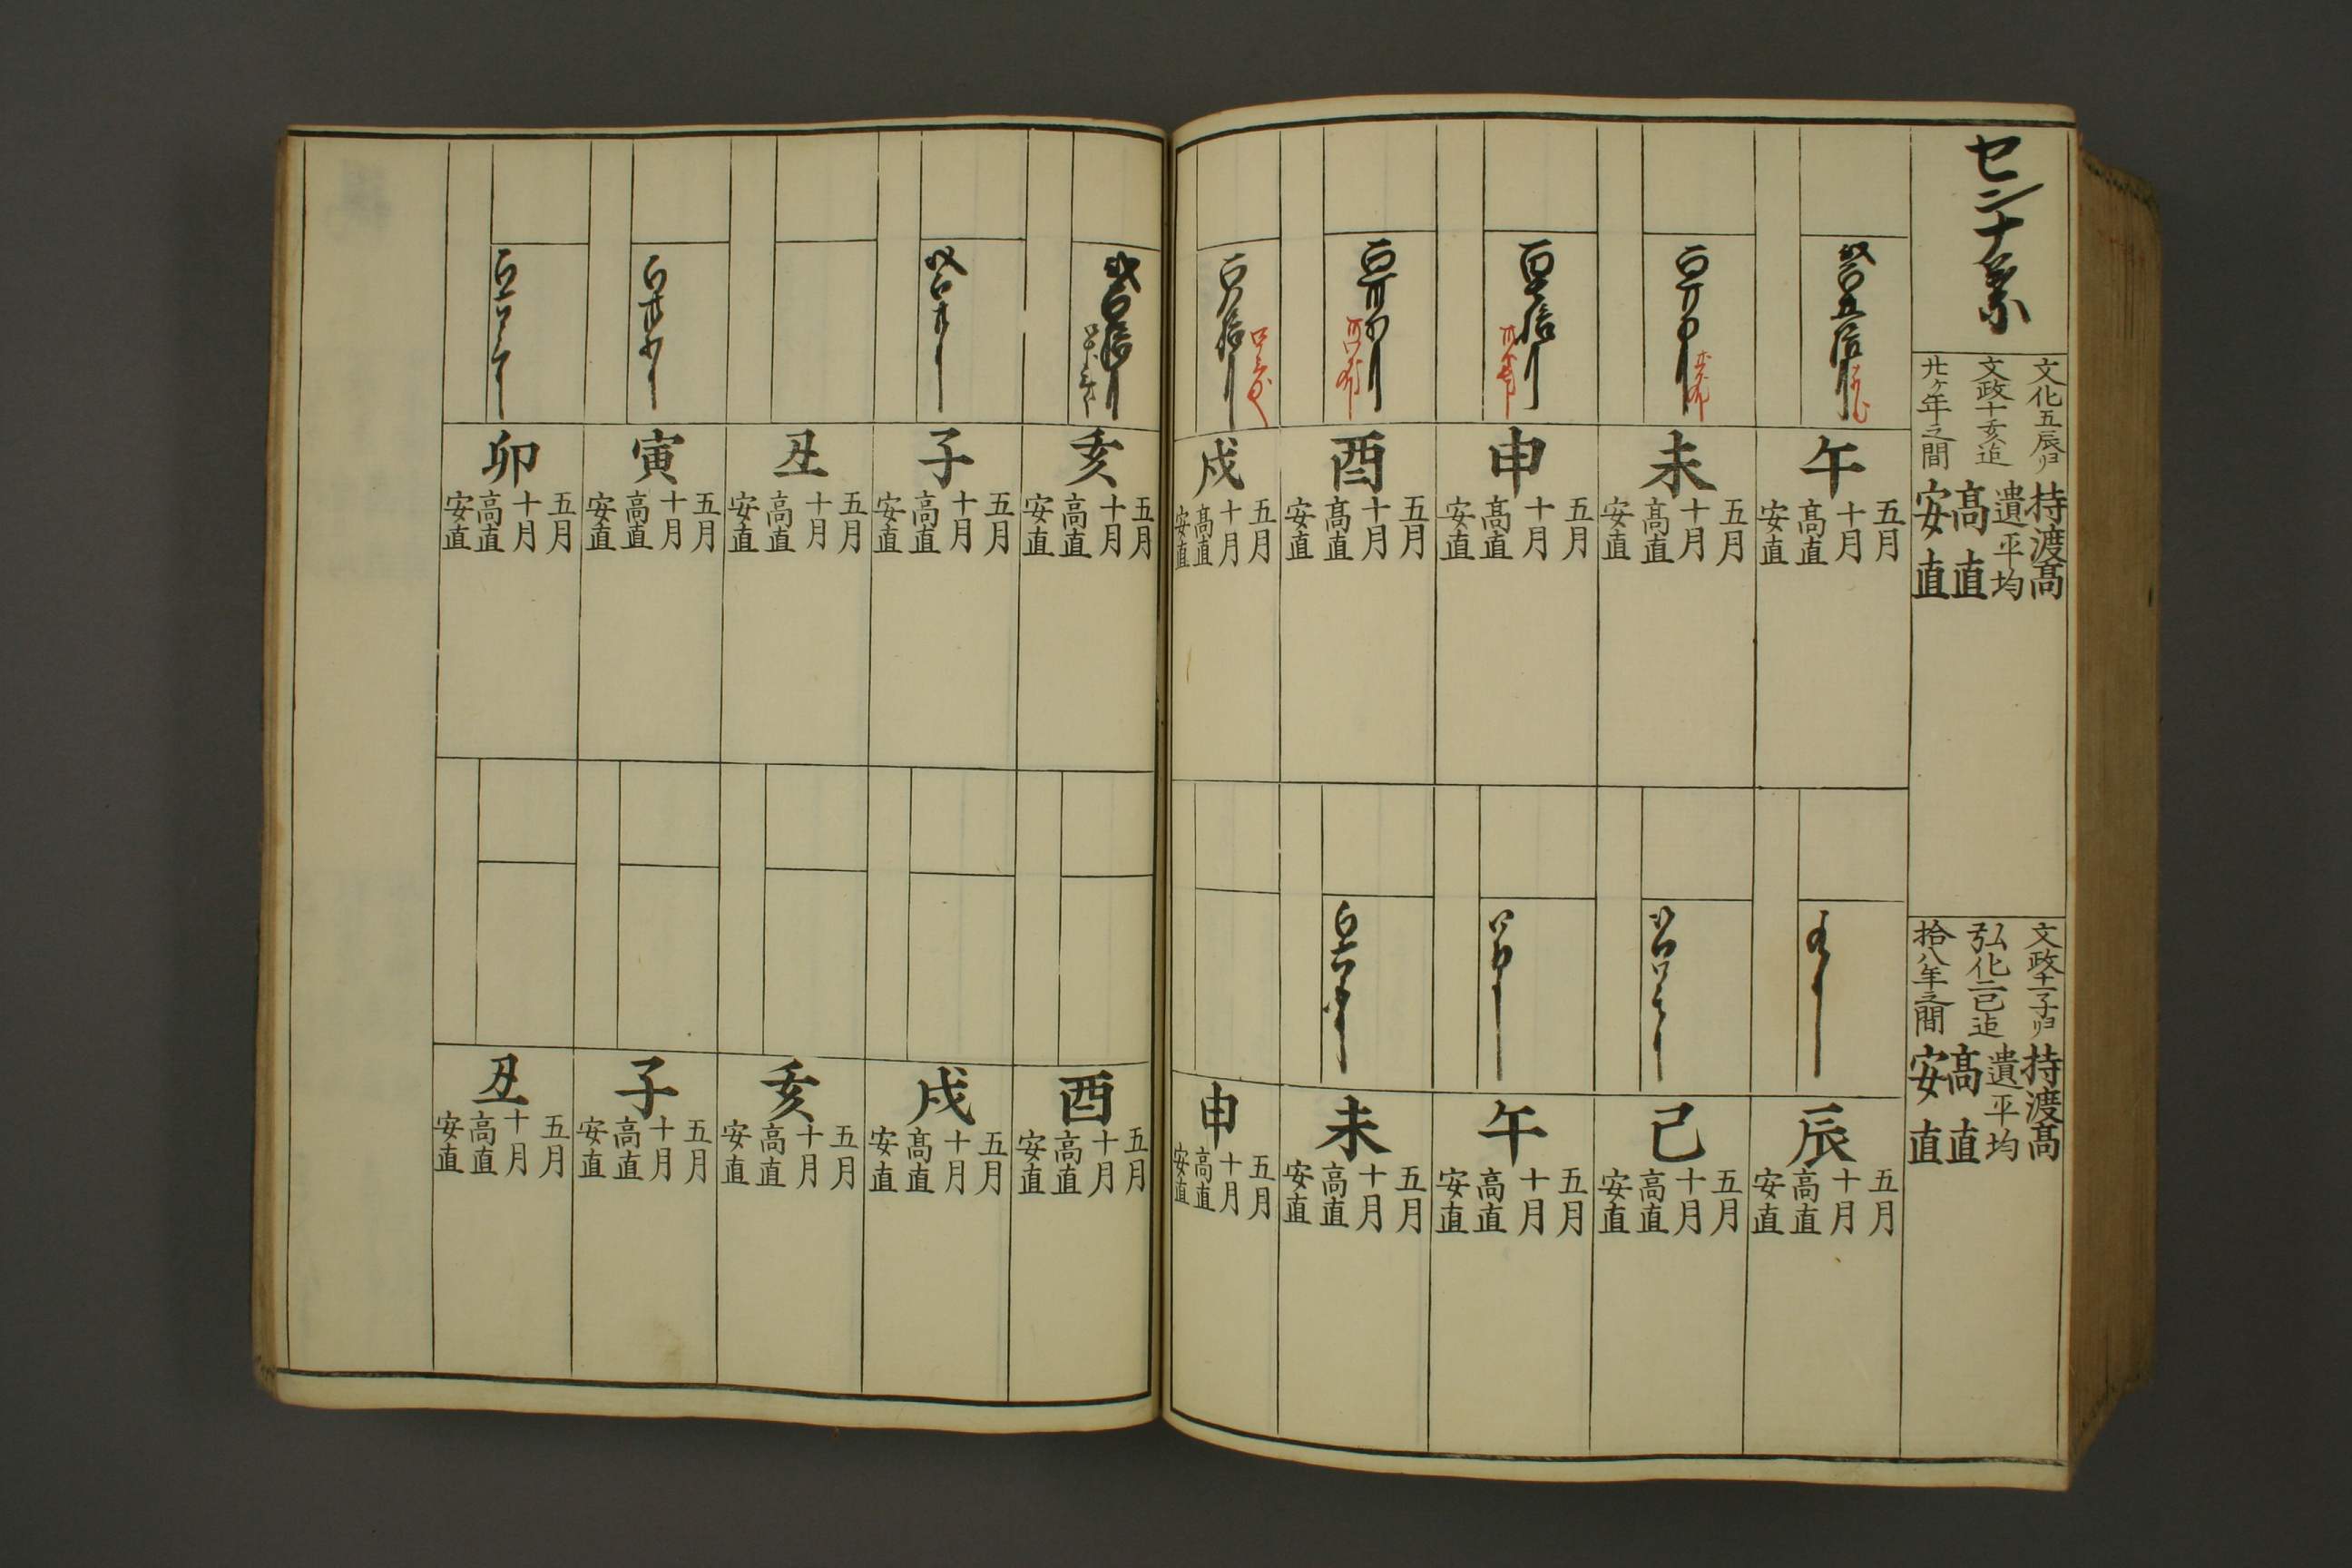 センナ葉
文化五辰ヨリ
文政十亥迠
廿ヶ年之間
持渡髙
遺平均
髙直
安直
文政十一子ヨリ
弘化二巳迠
拾八年之間
持渡髙
遺平均
髙直
安直
午
五月
十月
髙直
安直
未
五月
十月
髙直
安直
申
五月
十月
髙直
安直
酉
五月
十月
髙直
安直
戌
五月
十月
髙直
安直
亥
五月
十月
髙直
安直
子
五月
十月
髙直
安直
丑
五月
十月
髙直
安直
寅
五月
十月
髙直
安直
卯
五月
十月
髙直
安直
辰
五月
十月
髙直
安直
巳
五月
十月
髙直
安直
午
五月
十月
髙直
安直
未
五月
十月
髙直
安直
申
五月
十月
髙直
安直
酉
五月
十月
髙直
安直
戌
五月
十月
髙直
安直
亥
五月
十月
髙直
安直
子
五月
十月
髙直
安直
丑
五月
十月
髙直
安直